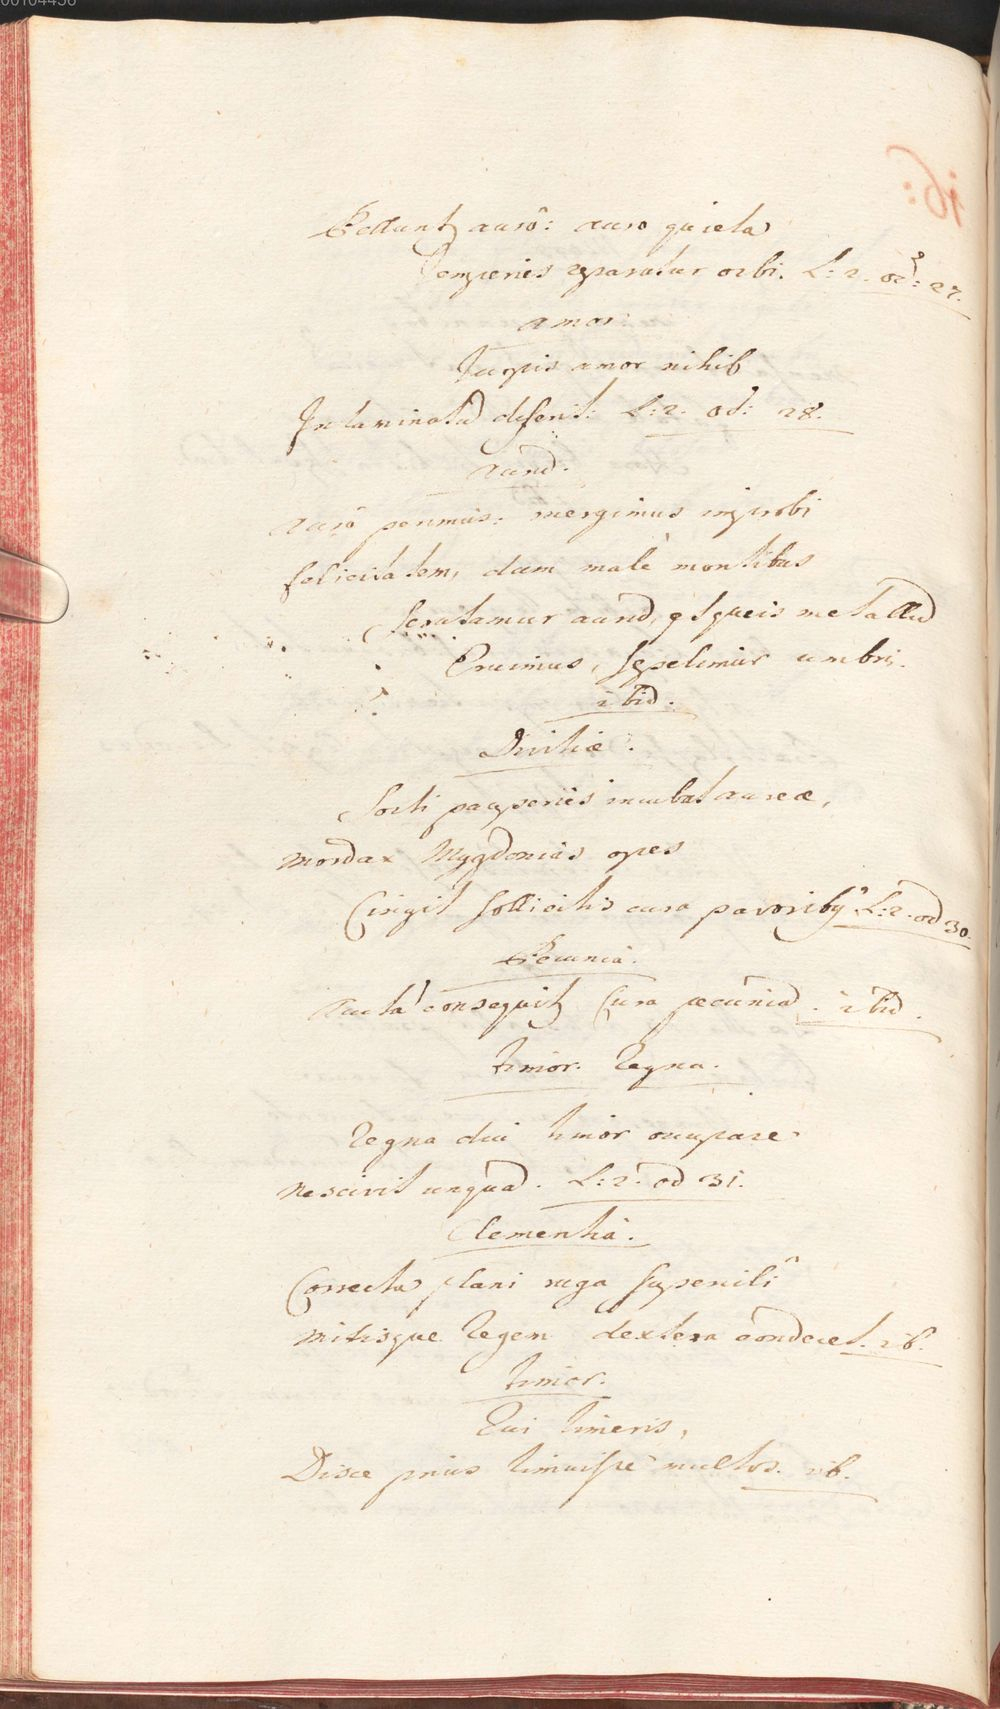 Pelluntꝫ aurô: auro quieta
Temperies reparatur orbi. L: 2. od: 27.
amor.
Turpis amor nihil
Intaminatū deserit: L: 2. Od: 28.
Aurū.
Aurô perimus: mergimus improbi
felicitatem, dum malè montibus
Scrutamur aurū, et queis metallū
Eruimus, sepelimur umbris.
ibid.
Divitiæ.
Sorti pauperies incubat aureæ,
mordax Mygdonias opes
Cingit sollicitis cura pavoribꝰ L: 2. od 30.
Pecunia.
Auctā consequitꝫ Cura pecuniā. ibid.
timor. Regna.
Regna diu timor occupare
nescivit unquā. L: 2. od 31.
Clementia.
Correcta plani ruga supercilî
mitisque Regem dextera condecet. ib.
timor.
Qui timeris,
Disce prius timuisse multos. ib.